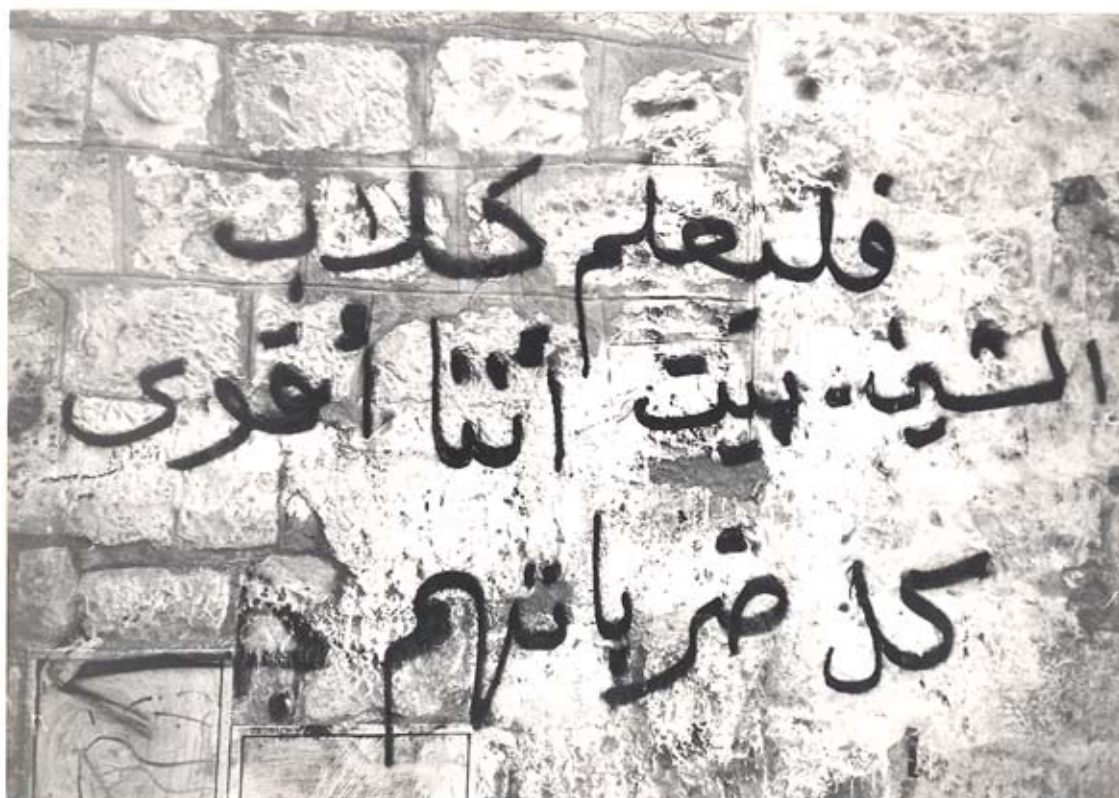 فليعلم كلاب
الشين.بيت اننا اقوى
كل ضرباتهم